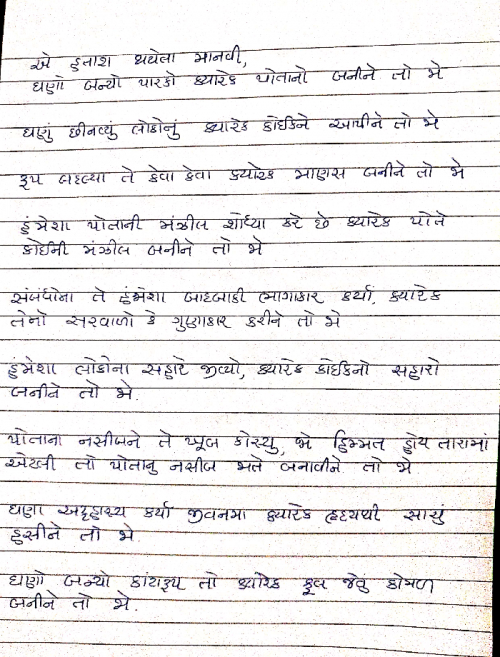 એ હતાશ થયેલા માનવી,
ઘણો બન્યો પારકો ક્યારેક પોતાનો બનીને તો જો
ઘણું છીનવ્યું લોકોનું ક્યારેક કોઈકને આપીને તો જો
રૂપ બદલ્યા તે કેવા કેવા ક્યારેક માણસ બનીને તો જો
હંમેશા પોતાની મંઝીલ શોધ્યા કરે છે ક્યારેક પોતે
કોઈની મંઝીલ બનીને તો જો
સંબંધોના તે હંમેશા બાદબાકી ભાગાકાર કર્યા, ક્યારેક
તેનો સરવાળો કે ગુણાકાર કરીને તો જો
હંમેશા લોકોના સહારે જીવ્યો, ક્યારેક કોઈકનો સહારો
બનીને તો જો.
પોતાના નસીબને તે ખૂબ કોસ્યુ, જો હિમ્મત હોય તારામાં
એટલી તો પોતાનુ નસીબ જાતે બનાવીને તો જો
ઘણા અટ્હાસ્ય કર્યા જીવનમા ક્યારેક હૃદયથી સાચું
હસીને તો જો.
ઘણો બન્યો કાંટારૂપ તો ક્યારેક ફૂલ જેવું કોમળ
બનીને તો જો.